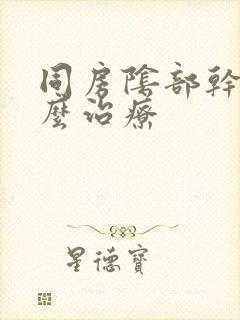 同房陰部幹
麼治療
星德寶